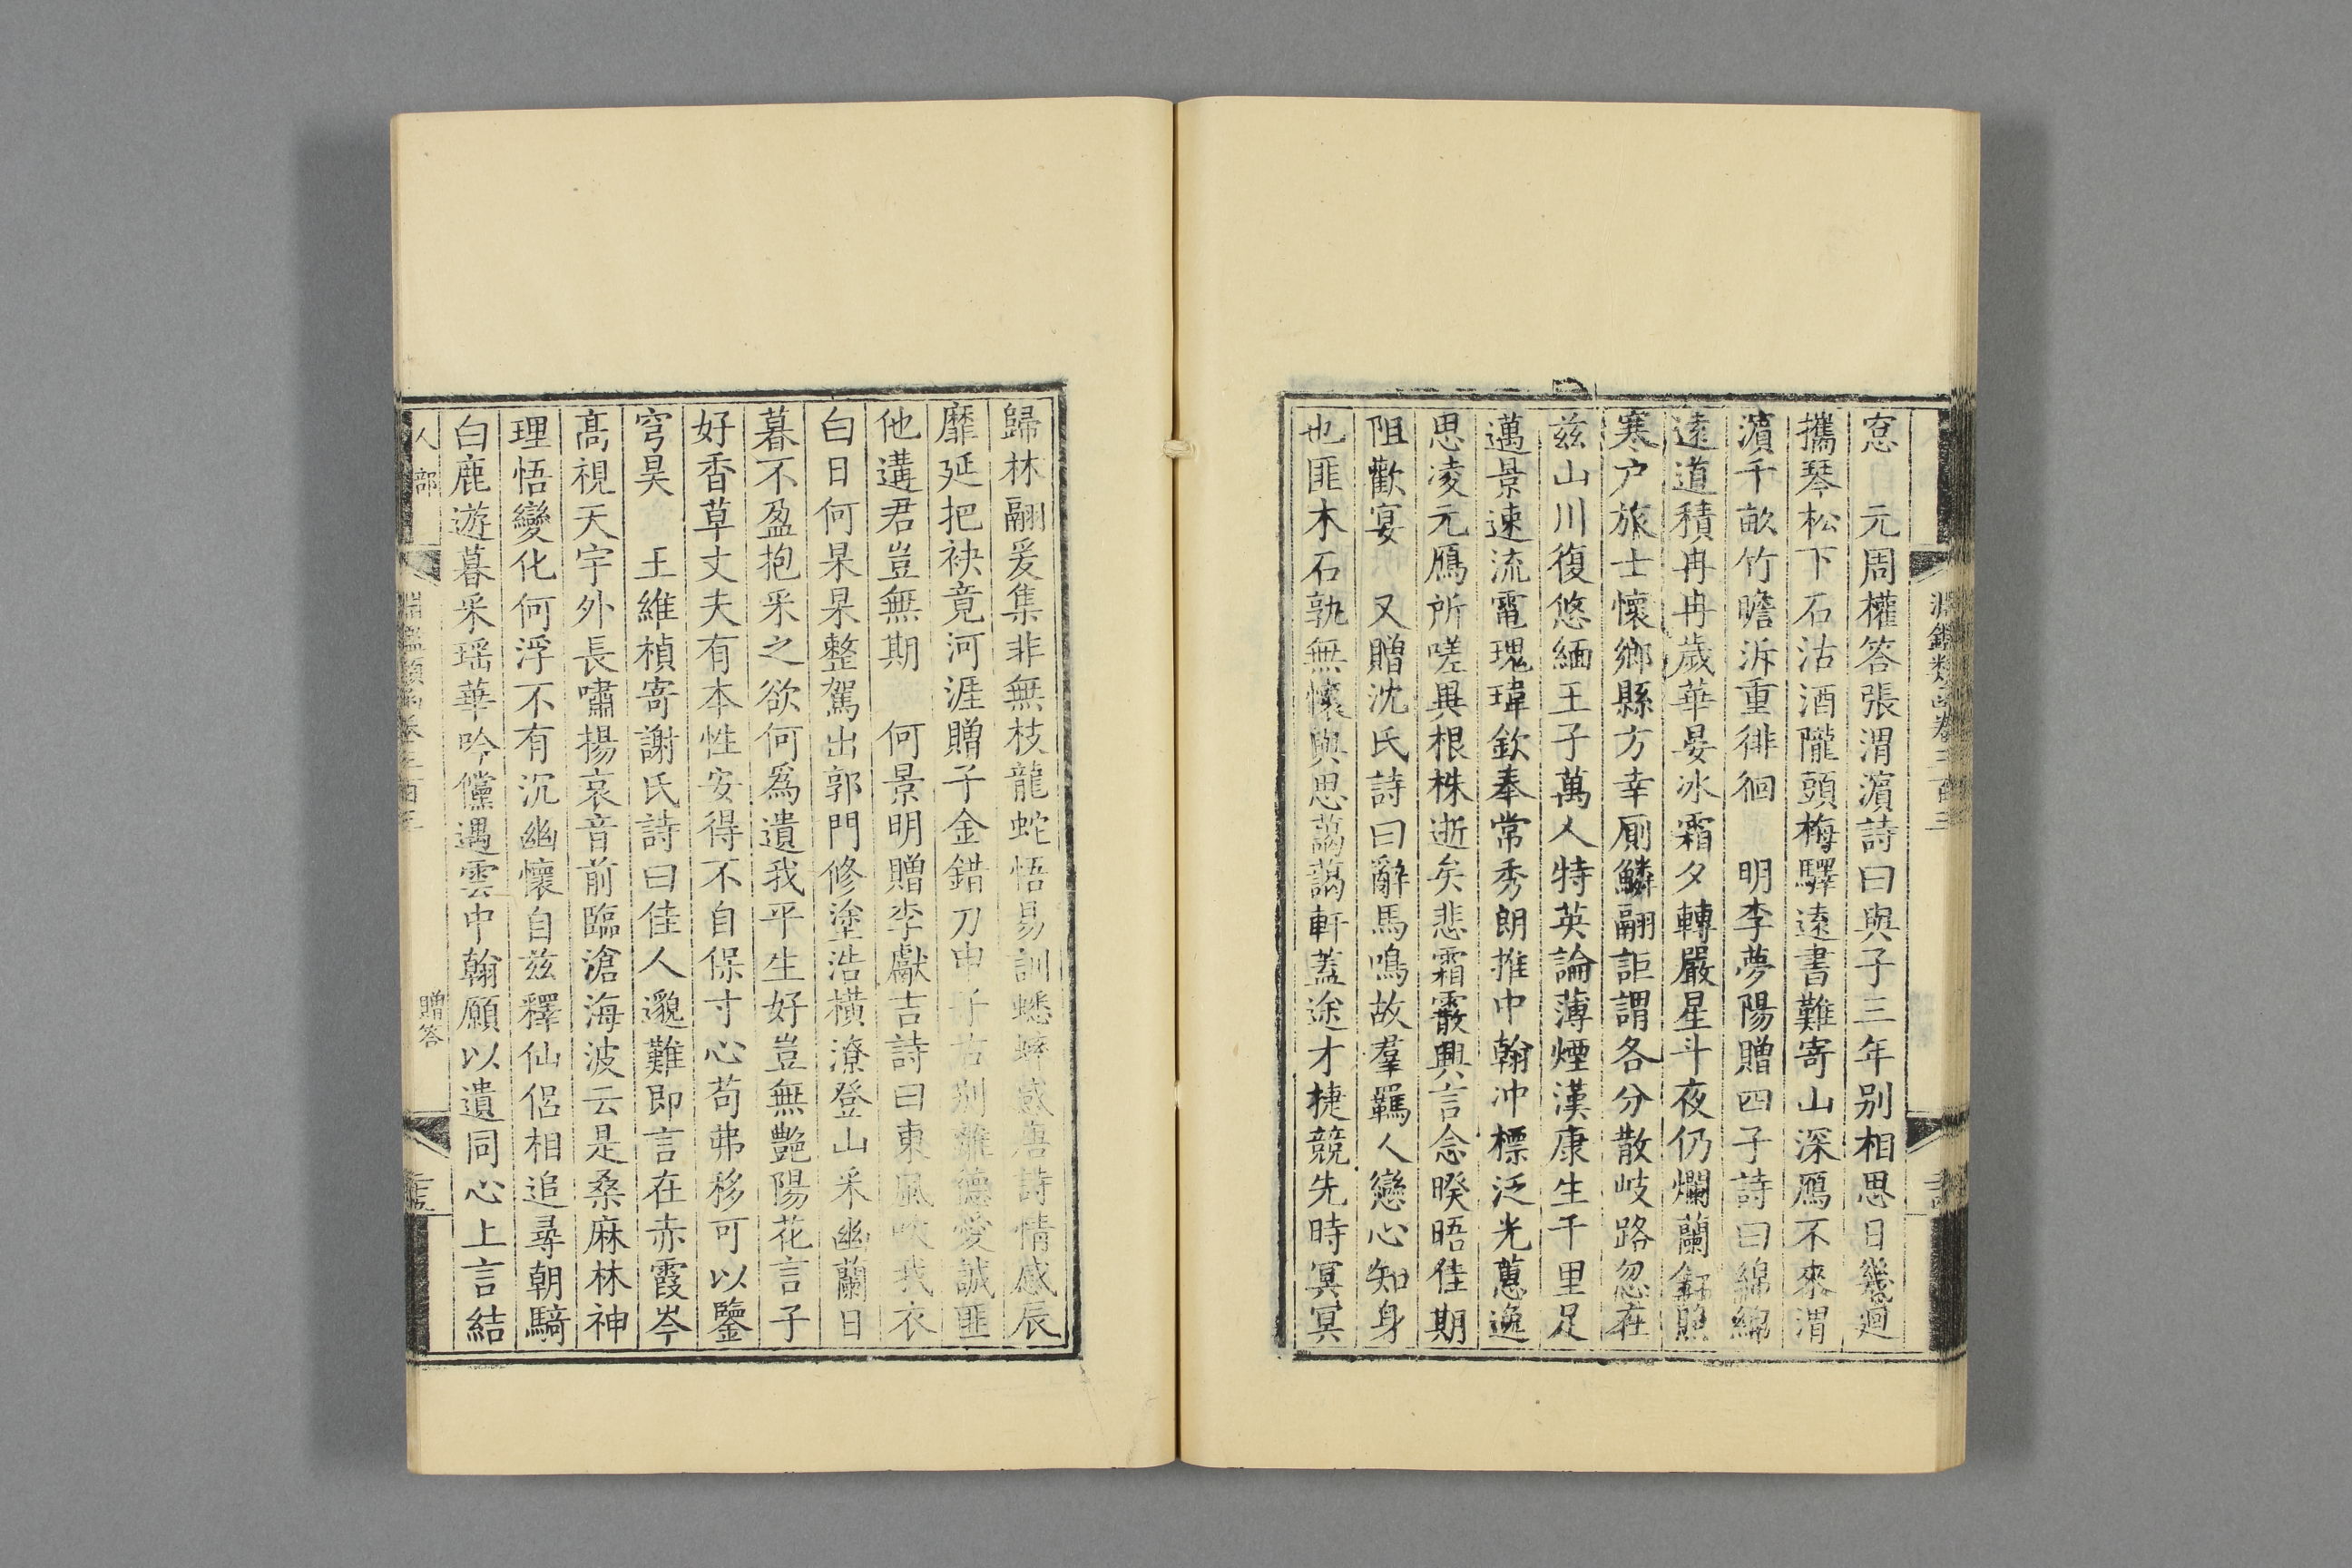 窓　元周權答張渭濵詩曰與子三年别相思日幾迴
攜琴松下石沽酒隴頭梅驛遠書難寄山深鴈不來渭
濵千畝竹瞻泝重徘徊　明李夢陽贈四子詩曰綿綿
逺道積冉冉歲華晏冰霜夕轉嚴星斗夜仍爛蘭釭照
寒户旅士懷鄉縣方幸厠鱗翮詎謂各分散岐路忽在
兹山川復悠緬王子萬人特英論薄煙漢康生千里足
邁景速流電瑰瑋欽奉常秀朗推中翰沖標泛光蕙逸
思凌元鴈所嗟異根株逝矣悲霜霰興言念暌晤佳期
阻歡宴　又贈沈氏詩曰辭馬鳴故羣羈人戀心知身
也匪木石孰無懷與思藹藹軒蓋途才捷競先時冥冥
淵鑑類函卷三百三
歸林翮爰集非無枝龍蛇悟易訓蟋蟀感唐詩情感辰
靡延把袂竟河涯贈子金錯刀申子古别離德愛誠匪
他遘君豈無期　何景明贈李獻吉詩曰東風吹我衣
白日何杲杲整駕出郭門修塗浩橫潦登山采幽蘭日
暮不盈抱采之欲何爲遺我平生好豈無艷陽花言子
好香草丈夫有本性安得不自保寸心苟弗移可以鑒
穹昊　王維楨寄謝氏詩曰佳人邈難即言在赤霞岑
高視天宇外長嘯揚哀音前臨滄海波云是桑麻林神
理悟變化何浮不有沉幽懷自兹釋仙侣相追尋朝騎
白鹿遊暮采瑶華吟儻遇雲中翰願以遺同心上言結
人部
淵鑑類函卷三百三
贈答